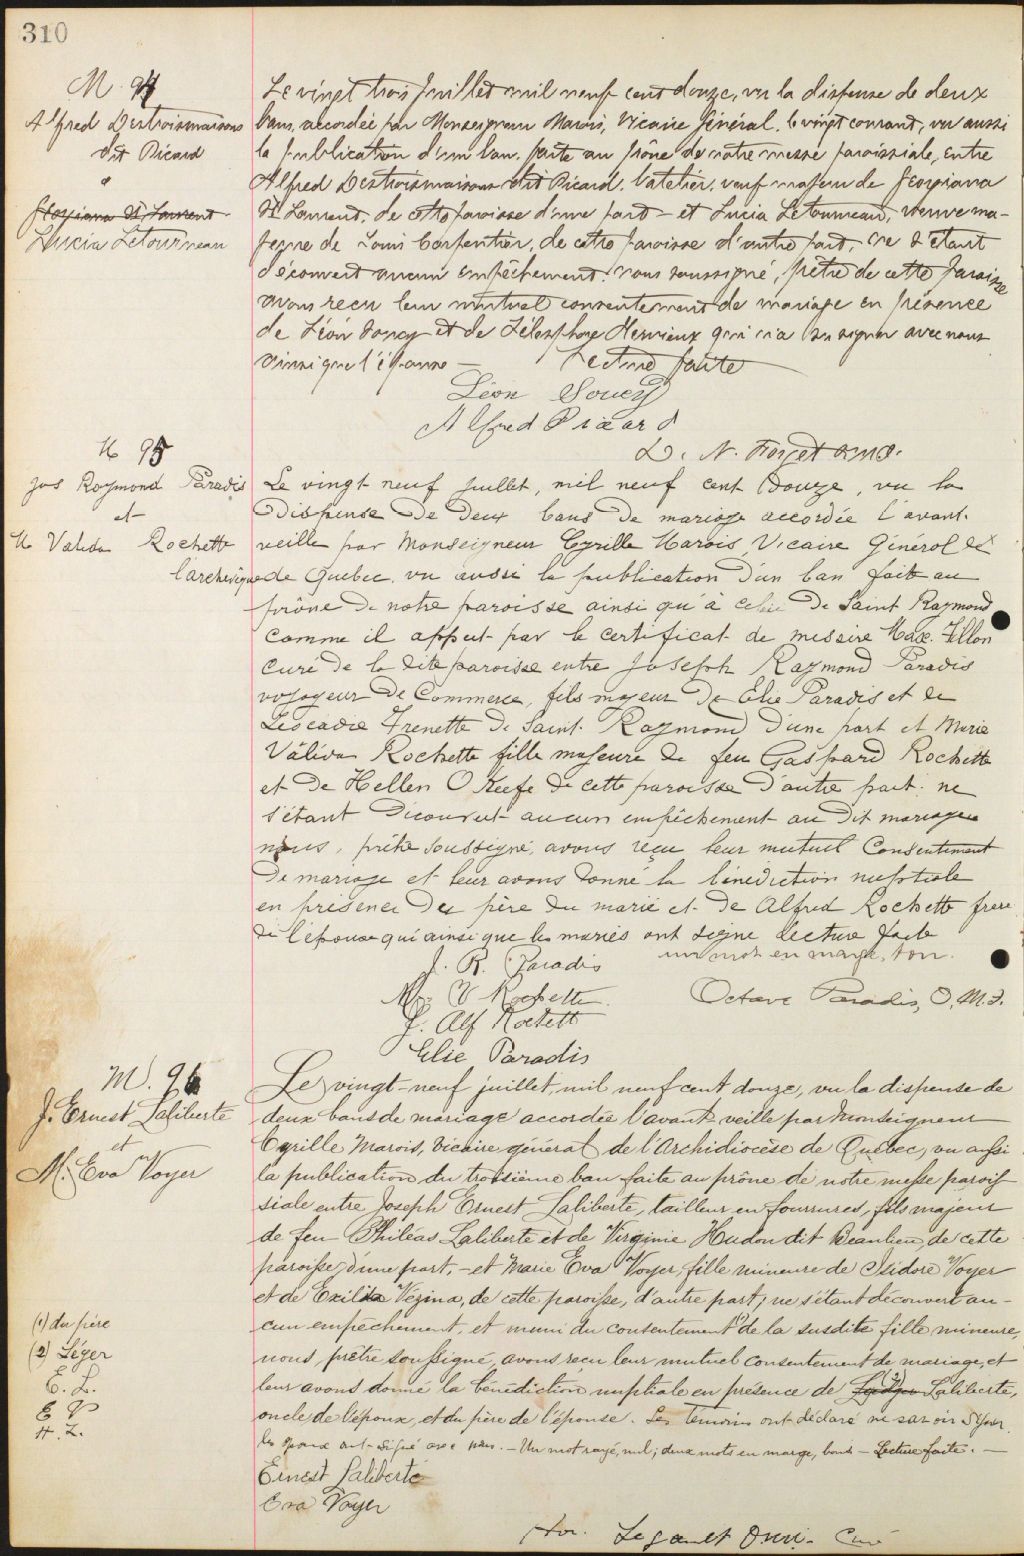 310
M. 94
Alfred Destroismaisons
dit Picard
et
Georgiana St Laurent
Lucia Letourneau
Le vingt trois Juillet mil neuf cent douze, vu la dispense de deux
bans, accordée par Monseigneur Marois, Vicaire Général, le vingt courant, vu aussi
la publication d'un ban, faite au prône de notre messe paroissiale, entre
Alfred Destroismaisons dit Picard, batelier, veuf majeur de Georgiana
St Laurent, de cette paroisse d'une part - et Lucia Letourneau, veuve ma-
jeure de Louis Carpentier, de cette paroisse d'autre part, ne s'étant
découvert aucun empêchement, nous soussigné, prêtre de cette paroisse
avons reçu leur mutuel consentement de mariage en présence
de Léon Soucy et de Télesphore Mervieux qui n'a su signer avec nous
ainsi que l'épouse — Lecture faite
Léon Soucy
Alfred Picard
L. N. Forget O.M.I.
M 95
Jos Raymond Paradis
et
M Valida Rochette
l'archevêque
Le vingt neuf juillet, mil neuf cent douze, vu la
dispense de deux bans de mariage accordée l'avant-
veille par Monseigneur Cyrille Marois, Vicaire Général de
de Quebec, vu aussi la publication d'un ban faite au
prône de notre paroisse ainsi qu'à celui de Saint Raymond
comme il appert par le certificat de messire Max. Fillon
curé de la dite paroisse entre Joseph Raymond Paradis
voyageur de Commerce, fils majeur de Elie Paradis et de
Léocadie Frenette de Saint Raymond d'une part et Marie
Válida Rochette fille majeure de feu Gaspard Rochette
et de Hellen O Keefe de cette paroisse d'autre part; ne
s'étant découvert aucun empêchement au dit mariage
nous, prêtre soussigné, avons reçu leur mutuel Consentement
de mariage et leur avons donné la bénédiction nuptiale
en présence des père du marié et de Alfred Rochette frère
de l'épouse qui ainsi que les mariés ont signé lecture faite
un mot en marge, bon.
J. R. Paradis
M. V Rochette
J. Alf Rochett
Elie Paradis
Octave Paradis, O.M.I.
M. 96
J. Ernest Laliberté
et
M. Eva Voyer
Le vingt-neuf juillet, mil neuf cent douze, vu la dispense de
deux bans de mariage accordée l'avant-veille par Monseigneur
Cyrille Marois, vicaire général de l'Archidiocèse de Québec, vu aussi
la publication du troisième ban faite au prône de notre messe parois
siale entre Joseph Ernest Laliberté, tailleur en fourrures, fils majeur
de feu Philéas Laliberté et de Virginie Hudon dit Beaulieu, de cette
paroisse, d'une part, - et Marie Eva Voyer, fille mineure de Isidore Voyer
et de Exilida Vézina, de cette paroisse, d'autre part; ne s'étant découvert au-
cun empêchement, et muni du consentement (1) de la susdite fille mineure,
nous, prêtre soussigné, avons reçu leur mutuel consentement de mariage, et
leur avons donné la bénédiction nuptiale en présence de (2) Laliberté,
oncle de l'époux, et du père de l'épouse. Les témoins ont déclaré ne savoir signer.
les époux ont signé avec nous. - Un mot rayé, nul; deux mots en marge, bons - Lecture faite. —
(1) du père
(2) Léger
E. L.
E V
H. L.
Ernest Laliberté
Eva Voyer
Legault O.M.I. Curé